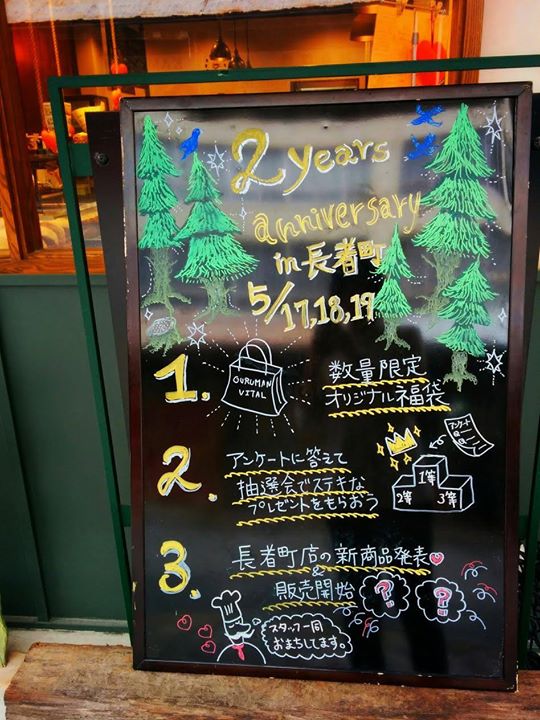 2 years
anniversary
in 長者町
5/17,18,19
1.
OURUMAN
VITAL
数量限定
オリジナル福袋
2.
アンケートに答えて
抽選会でステキな
プレゼントをもらおう
アンケート
1等
2等
3等
3.
長者町店の新商品発表
&
販売開始
?
?
スタッフ一同
おまちしてます。